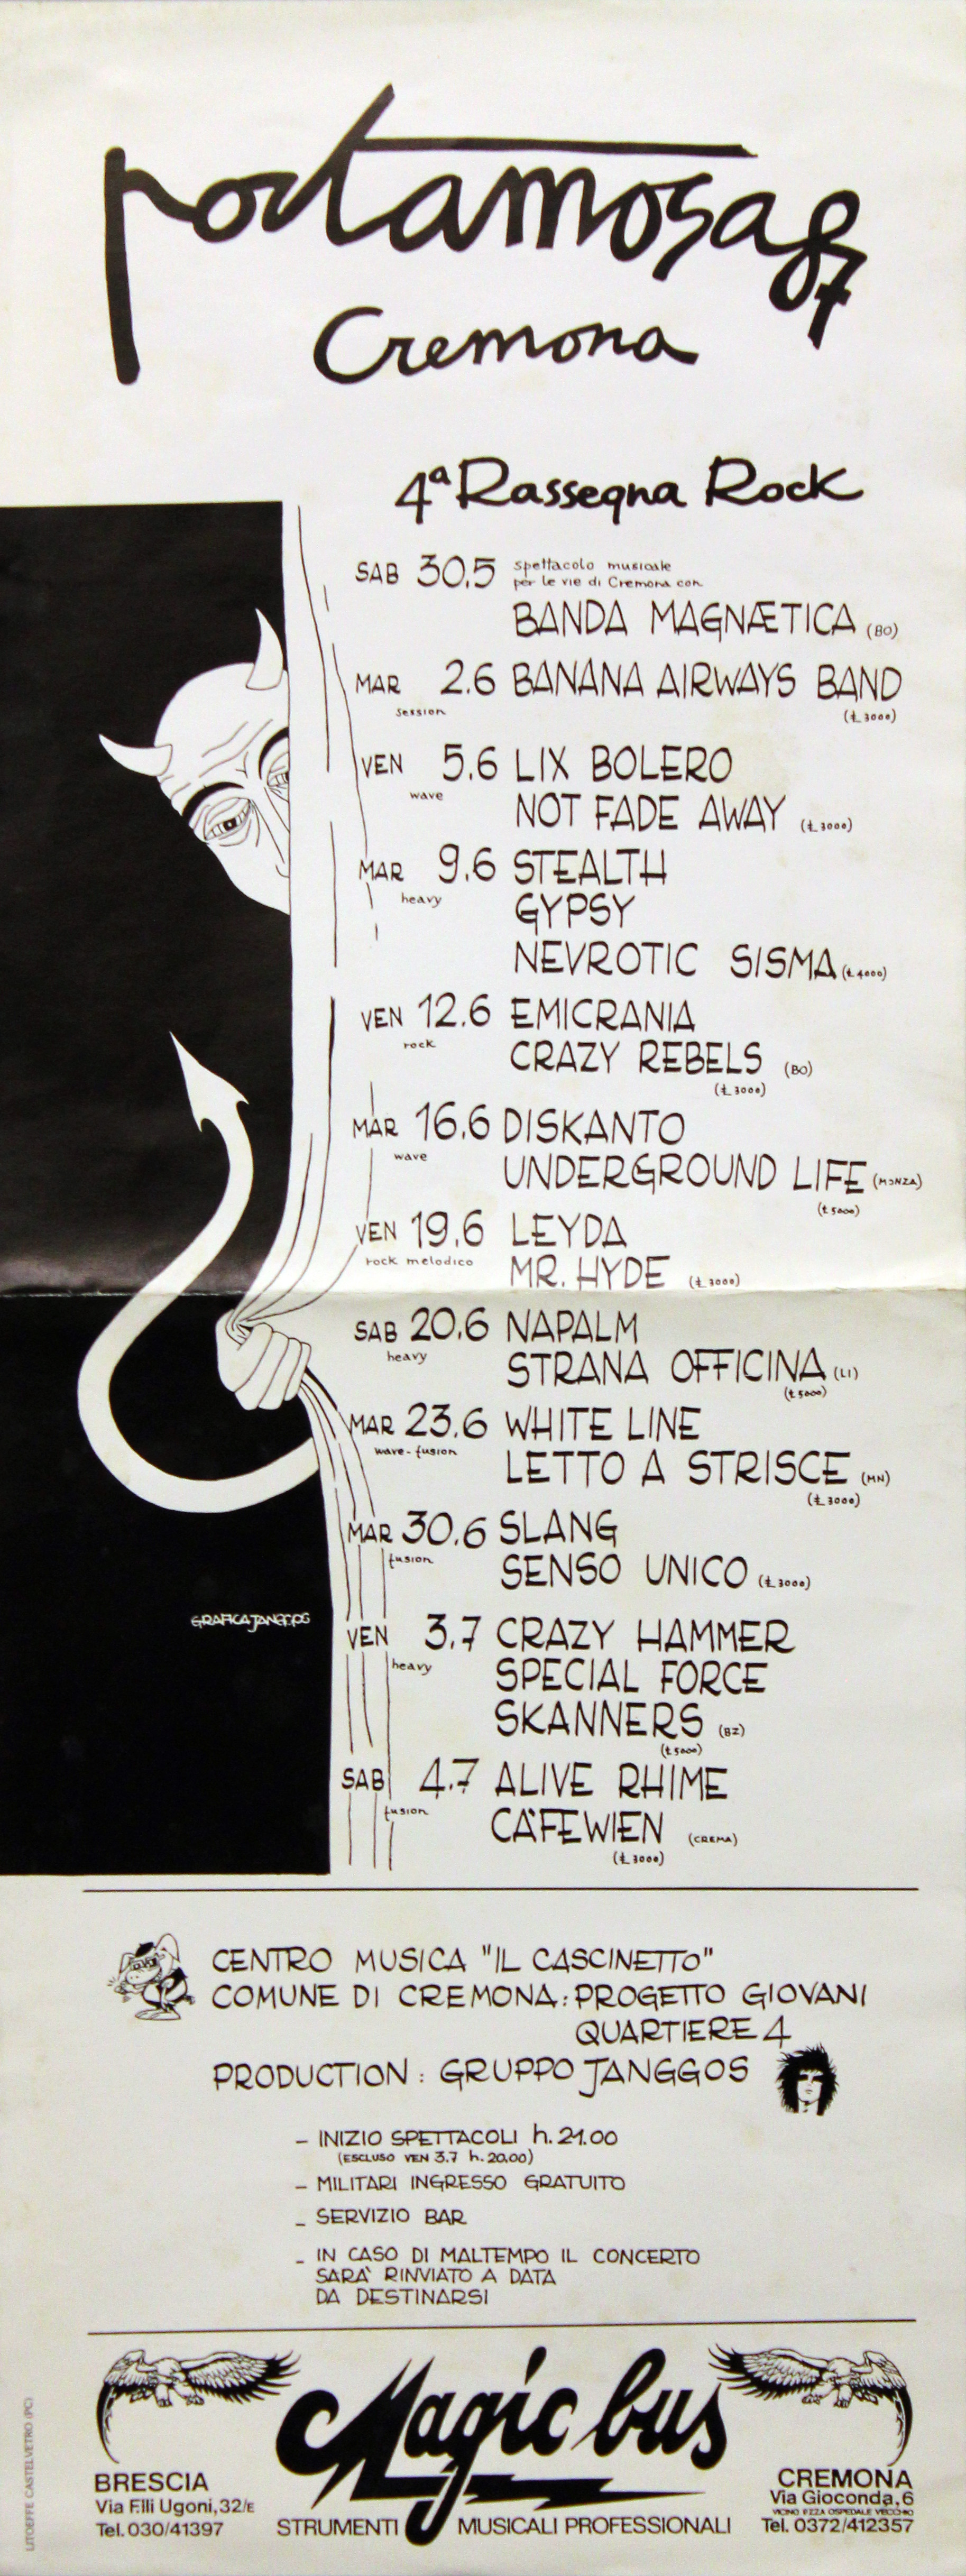 portamosa87
Cremona
4ª Rassegna Rock
SAB 30.5 spettacolo musicale
per le vie di Cremona con
BANDA MAGNÆTICA (BO)
MAR 2.6 BANANA AIRWAYS BAND
session (£ 3000)
VEN 5.6 LIX BOLERO
wave
NOT FADE AWAY (£ 3000)
MAR 9.6 STEALTH
heavy
GYPSY
NEVROTIC SISMA (£ 4000)
VEN 12.6 EMICRANIA
rock
CRAZY REBELS (BO)
(£ 3000)
MAR 16.6 DISKANTO
wave
UNDERGROUND LIFE (MONZA)
(£ 5000)
VEN 19.6 LEYDA
rock melodico
MR. HYDE (£ 3000)
SAB 20.6 NAPALM
heavy
STRANA OFFICINA (LI)
(£ 5000)
MAR 23.6 WHITE LINE
wave-fusion
LETTO A STRISCE (MN)
(£ 3000)
MAR 30.6 SLANG
fusion
SENSO UNICO (£ 3000)
GRAFICA JANGGOS
VEN 3.7 CRAZY HAMMER
heavy
SPECIAL FORCE
SKANNERS (BZ)
(£ 5000)
SAB 4.7 ALIVE RHIME
fusion
CAFEWIEN (CREMA)
(£ 3000)
CENTRO MUSICA "IL CASCINETTO"
COMUNE DI CREMONA: PROGETTO GIOVANI
QUARTIERE 4
PRODUCTION: GRUPPO JANGGOS
- INIZIO SPETTACOLI h. 21.00
(ESCLUSO VEN 3.7 h. 20.00)
- MILITARI INGRESSO GRATUITO
- SERVIZIO BAR
- IN CASO DI MALTEMPO IL CONCERTO
SARA' RINVIATO A DATA
DA DESTINARSI
Magic bus
STRUMENTI MUSICALI PROFESSIONALI
BRESCIA
Via F.lli Ugoni, 32/E
Tel. 030/41397
CREMONA
Via Gioconda, 6
VICINO P.ZZA OSPEDALE VECCHIO
Tel. 0372/412357
LITOEFFE CASTELVETRO (PC)